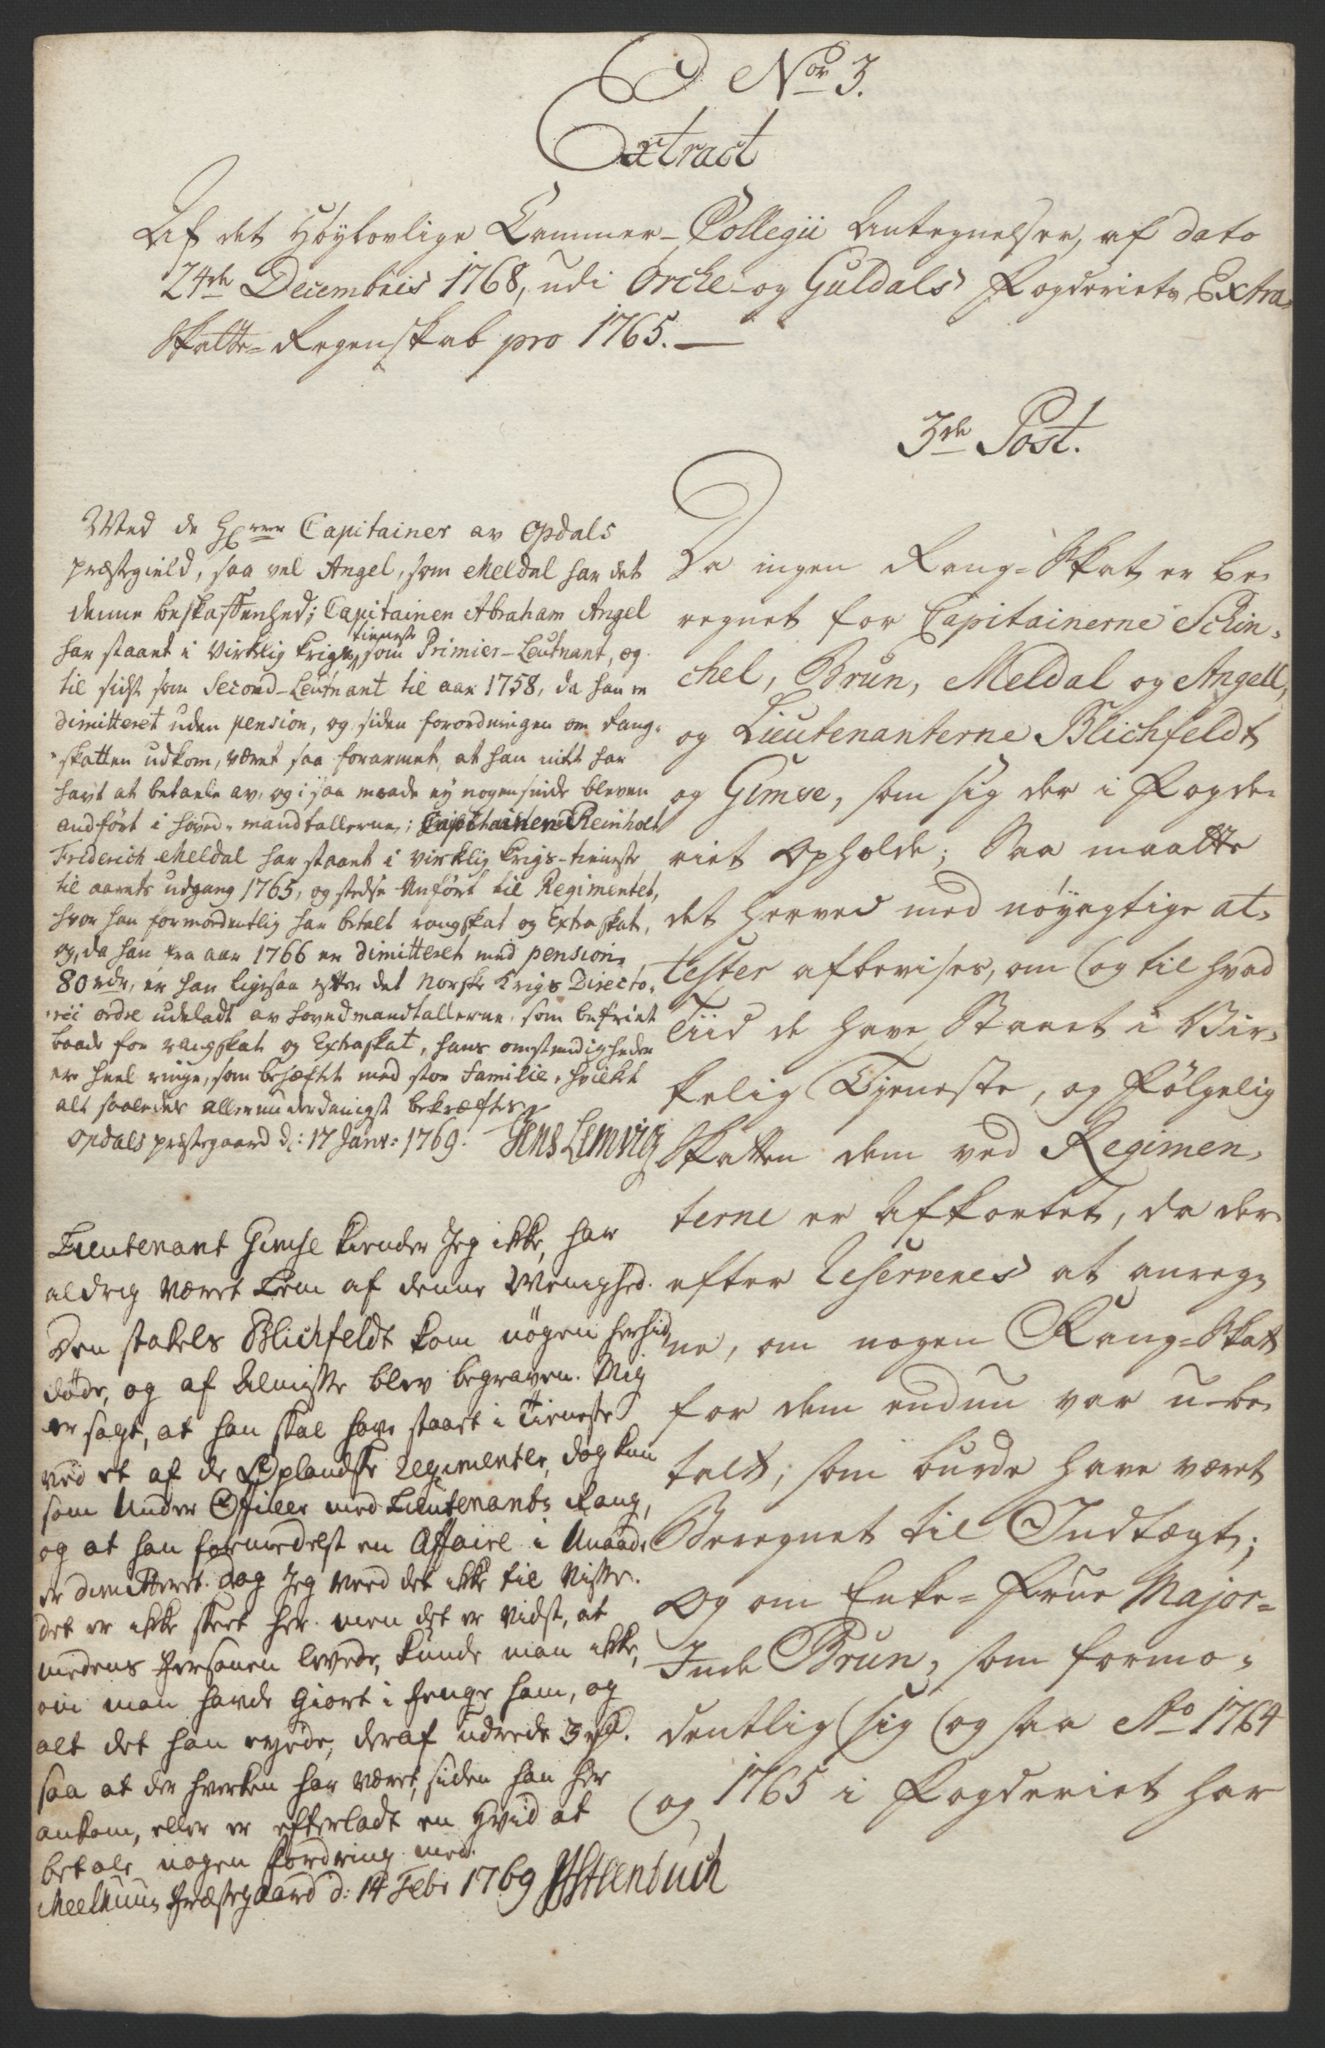 No 3.
Extract
Af det Høylovlige Cammer-Collegii Antegnelser, af dato
24de Decembris 1768, udi Orche- og Guldals Fogderiets Extra-
Skatte-Regenskab pro 1765.
3de Post.
Ved de Hrrer Capitainer av Opdals
præstegield, saa vel Angel, som Meldal har det
denne beskaffenhed; Capitainen Abraham Angel
tieneste
har staaet i Virklig Krigs som Primier-Leutnant, og
til sidst som Second-Leutnant til aar 1758, da han er
dimitteret uden pension, og siden forordningen om Rang-
skatten udkom, været saa forarmet, at han intet har
havt at betaele av, og i saa maade ey nogensinde bleven
andført i hoved-mandtallerne; Capitainen Reinholt
Friderich Meldal har staaet i virklig Krigs-tieneste
til aarets udgang 1765, og stedse Anført til Regimentet,
hvor han formodentlig har betalt rangskat og Extraskat,
og, da han fra aar 1766 er dimitteret med pension
80 rdr, er han ligesaa efter det Norske Krigs Directo-
rii ordre udeladt av hovedmandtallerne, som befriet
baade for rangskat og Extraskat, hans omstændigheder
er heel ringe, som behæftet med stor Familie, hvilket
alt saaledes allerunderdanigst bekræftes
Opdals præstegaard d: 17 Janv: 1769. Jens Lemvig
Lieutenant Gimse kiender Jeg ikke, har
aldrig været Lem af denne Menighed.
Den stakels Blichfeldt kom nøgen herhid
døde, og af Almisse blev begraven. Mig
er sagt, at han skal have staaet i Tieneste
ved et af de Oplandske Regimenter, dog kun
som Under Officer med Lieutenants Rang,
og at han formedelst en Affaire i Unaade
er dimitteret. dog Jeg veed det ikke til Visse.
det er ikke skeet her. men det er vidst, at
medens Personen levede, kunde man ikke,
om man havde giort i Penge ham, og
alt det han eyede, deraf udrede 3 rd.
saa at der hverken har været, siden han her
ankom, eller er efterladt en Hvid at
betale nogen fordring med.
Meelhuus Præstegaard d: 14 Febr 1769 Steenbuch
Da ingen Rang-Skat er be-
regnet for Capitainerne Schin-
chel, Brun, Meldal og Angell,
og Lieutenanterne Blichfeldt
og Gimse, som sig der i Fogde-
riet Opholde; Saa maatte
det herved med nøyagtige at-
tester afbevises, om (og til hvad
Tiid de have Staaet i Vir-
kelig Tjeneste, og Følgelig
Skatten dem ved Regimen-
terne er Afkortet, da der-
efter Reserveres at anreg-
ne, om nogen Rang-Skat
for dem endnu var u-be-
talt; som burde have været
Beregnet til Indtægt;
Og om Enke-Frue Major-
Inde Brun, som formo-
dentlig (sig (og saa Ao 1764
og 1765 i Fogderiet har